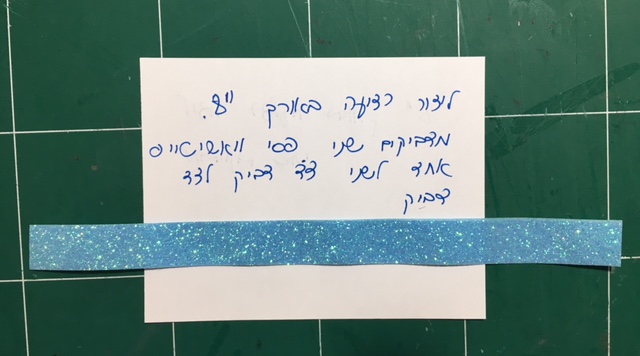 ליצור רצועה באורך 8".
מדביקים שני פסי וואשיטייפ
אחד לשני צד דביק לצד
דביק